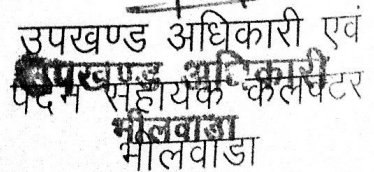 उपखण्ड अधिकारी एवं
उपखण्ड अधिकारी
पदेन सहायक कलेक्टर
भीलवाडा
भीलवाडा